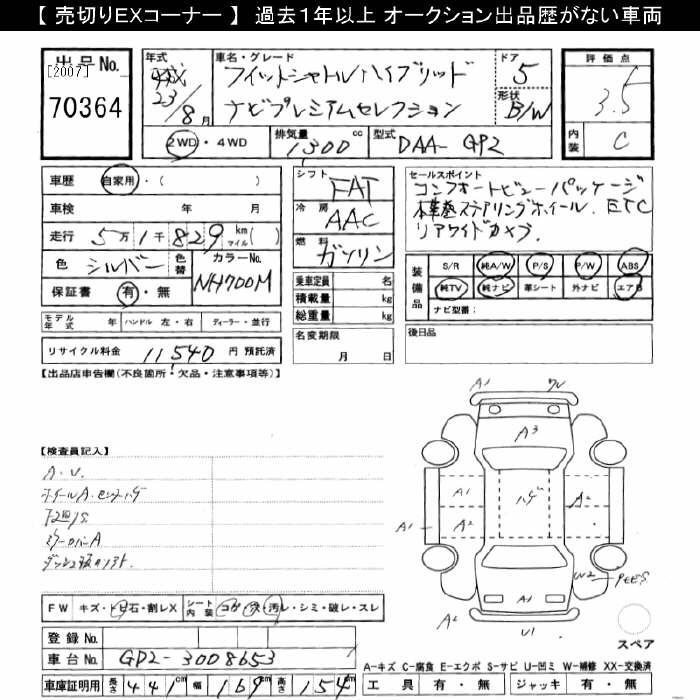 【 売切りEXコーナー 】 過去1年以上 オークション出品歴がない車両
出品No.
[2007]
70364
年式
平成 23/8月
車名・グレード
フィットシャトルハイブリッド
ナビプレミアムセレクション
ドア
5
形状
B/W
評価点
3.5
内装
C
2WD・4WD
排気量 1300 cc
型式 DAA-GP2
車歴 自家用・( )
車検 年 月
走行 5万1千829 km マイル( )
色 シルバー
色替
カラーNo. NH700M
保証書 有・無
シフト FAT
冷房 AAC
燃料 ガソリン
乗車定員 名
積載量 kg
総重量 kg
セールスポイント
コンフォートビューパッケージ
本革巻ステアリングホイール. ETC
リアワイドカメラ.
装備品
S/R 純A/W P/S P/W ABS
純TV 純ナビ 革シート 外ナビ エアB
ナビ型番:
モデル年式 年 ハンドル 左・右 ディーラー・並行
リサイクル料金 11,540 円 預託済
名変期限
月 日
後日品
【出品店申告欄(不良箇所・欠品・注意事項等)】
【検査員記入】
A.U.
下廻りS
ミラーカバーA
A1
A3
A1
A2
ハゲ
A1
A2
A2
A1
W2
A2
U1
スペア
FW キズ・トビ石・割レX
シート内装 コゲ・穴・汚レ・シミ・破レ・スレ
登録No.
車台No. GP2-3008653
車庫証明用 長さ 441cm 幅 169cm 高さ 154cm
A-キズ C-腐食 E-エクボ S-サビ U-凹ミ W-補修 XX-交換済
工具 有・無 ジャッキ 有・無